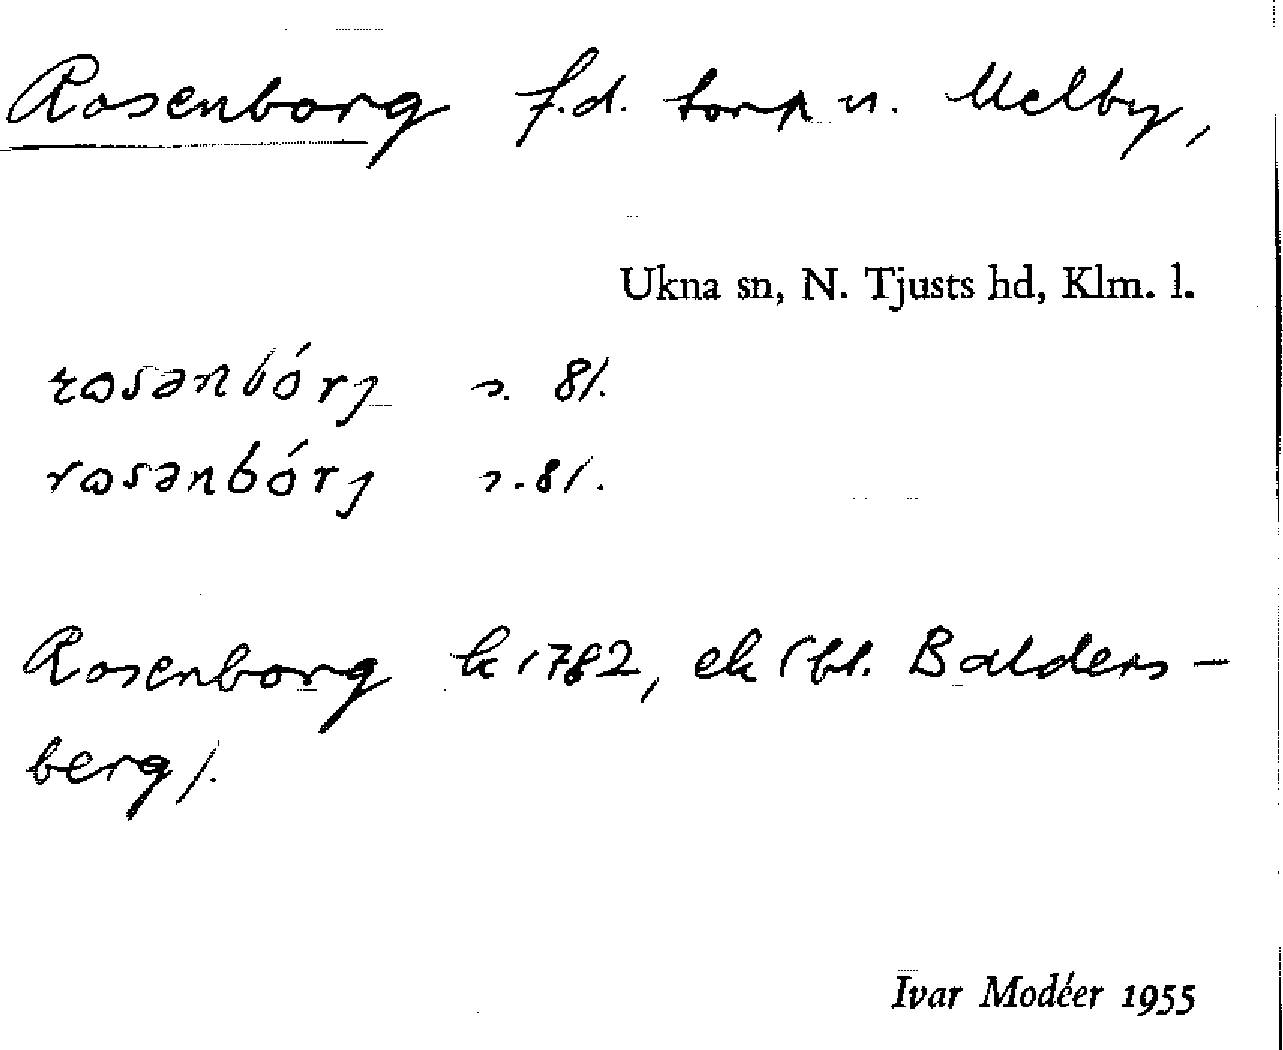 Rosenborg f.d. torp u. Melby,
Ukna sn, N. Tjusts hd, Klm. l.
rosənbórj s. 81.
rosənbórj s. 81.
Rosenborg k 1782, ek (bl. Balders-
berg).
Ivar Modéer 1955